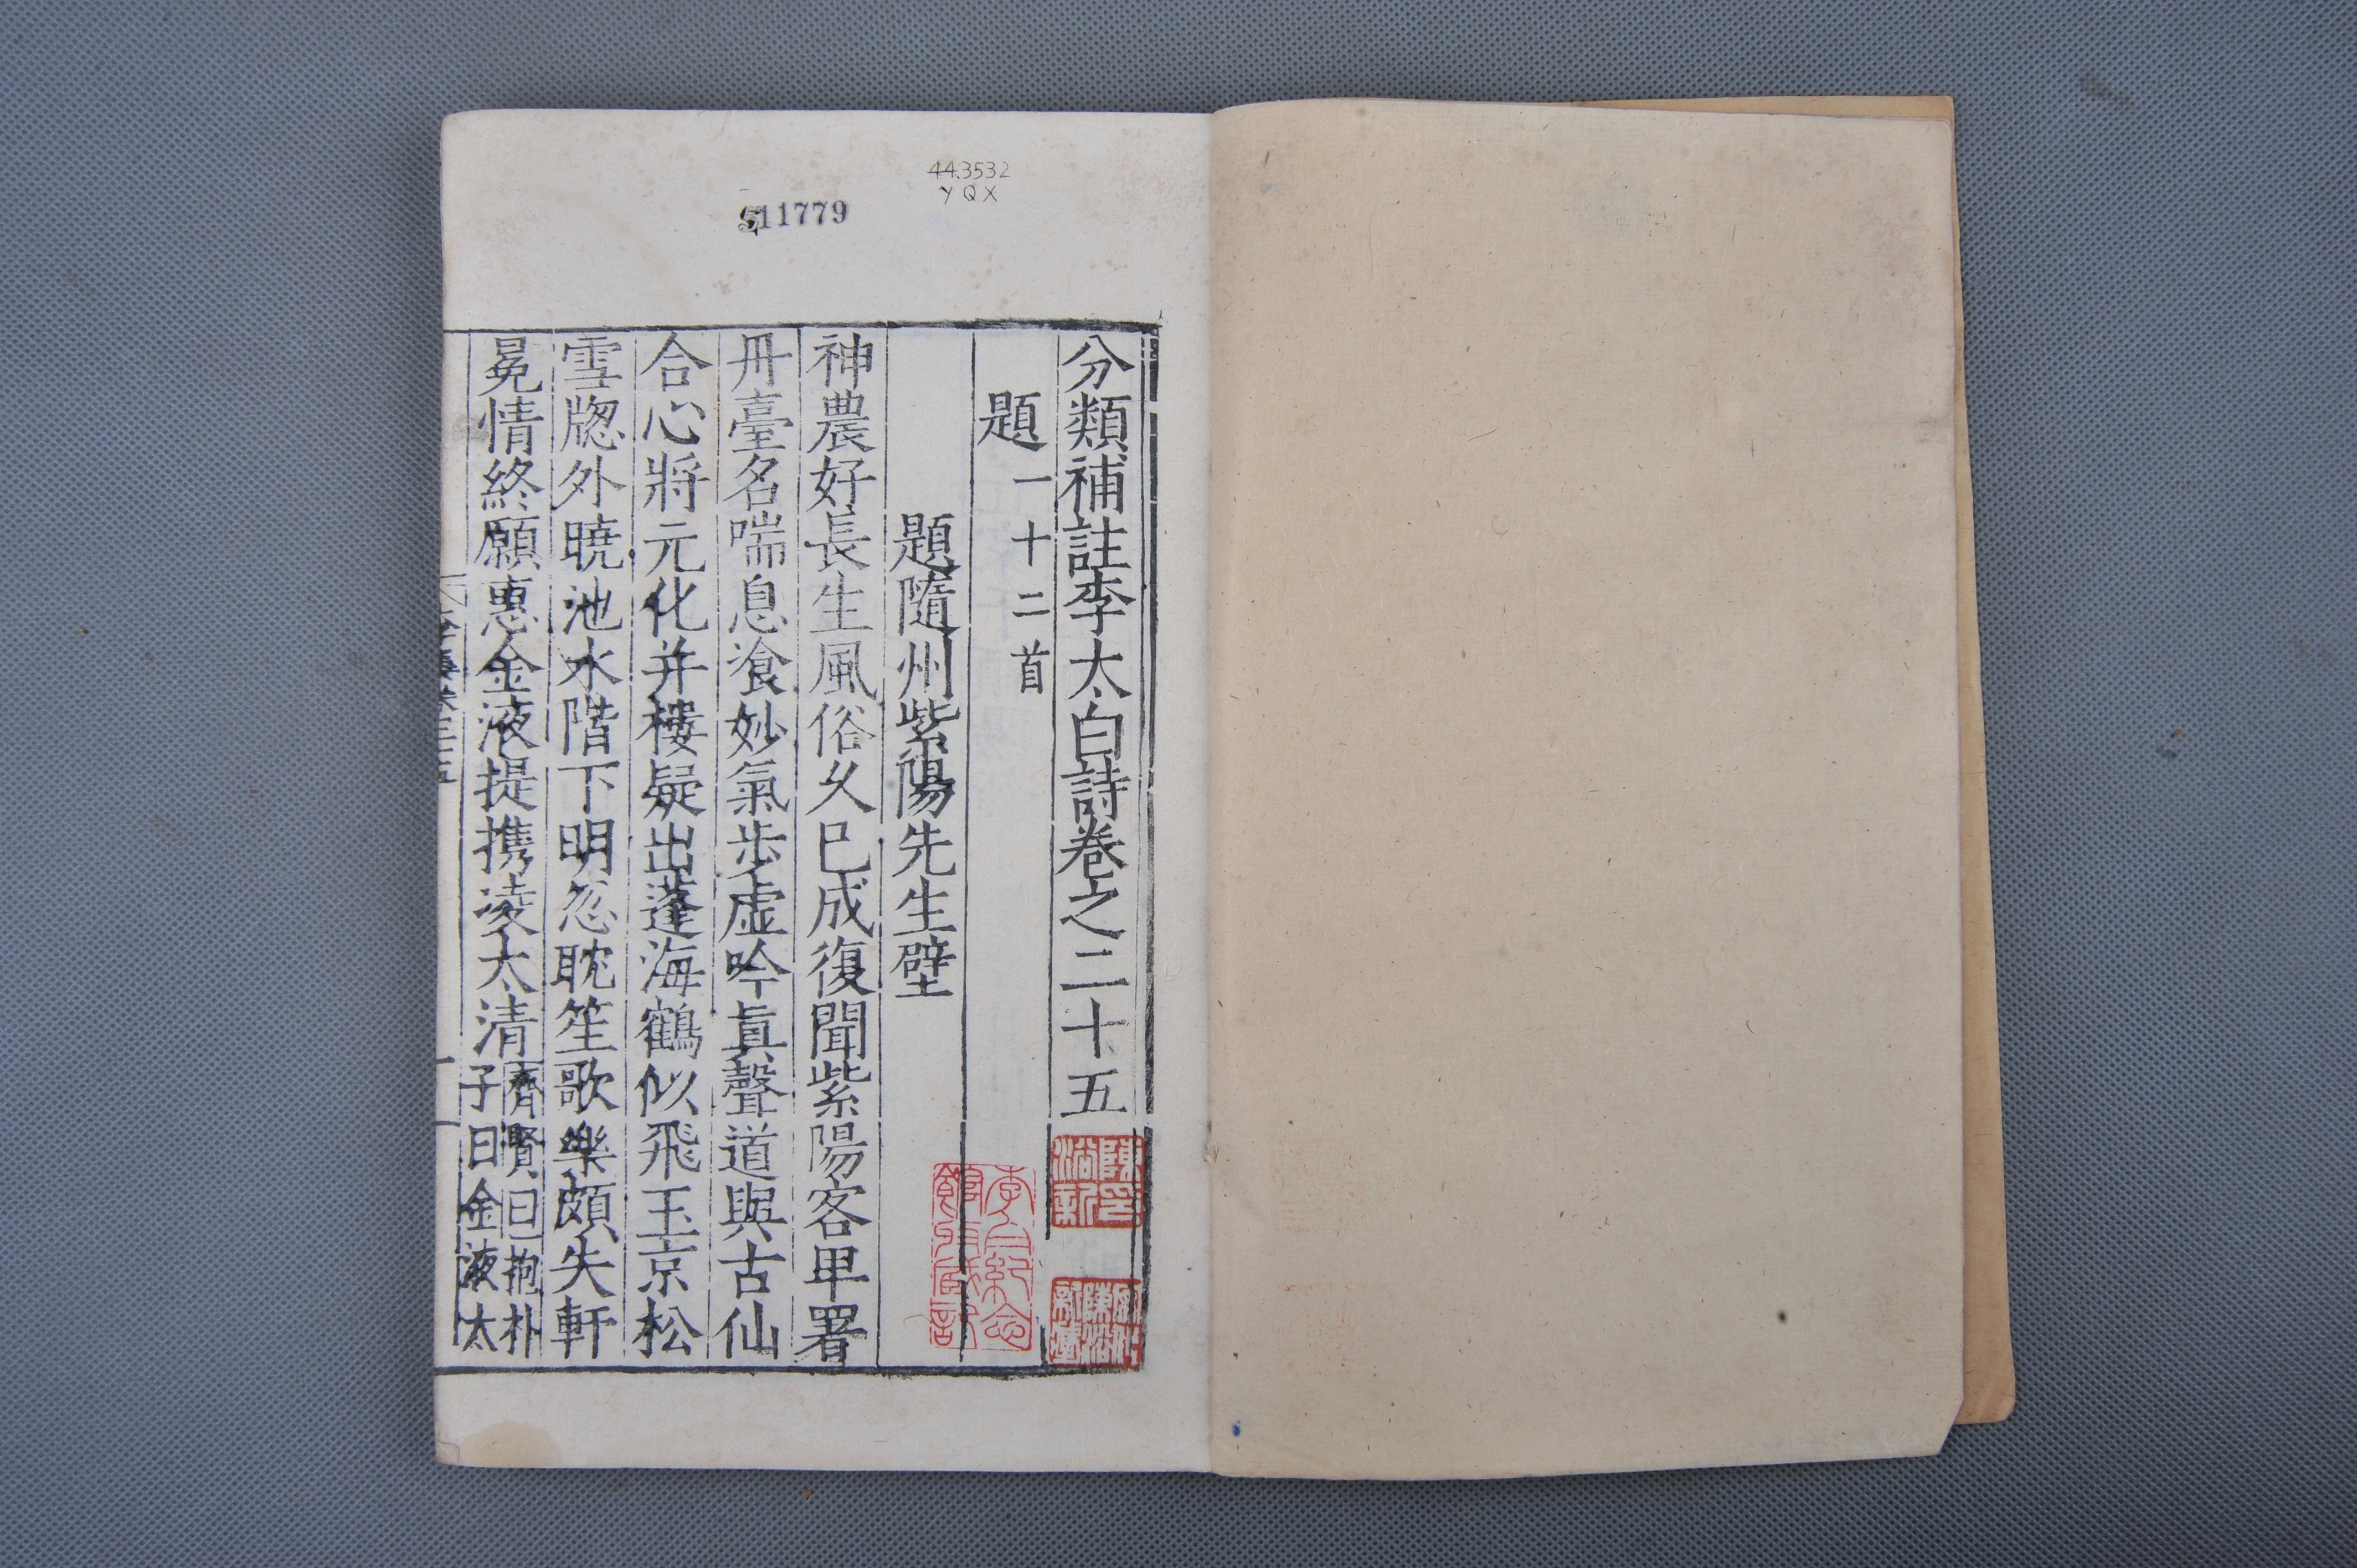 443532
YQX
511779
分類補註李太白詩卷之二十五
題一十二首
題隨州紫陽先生壁
神農好長生風俗久已成復聞紫陽客早署
丹臺名喘息飡妙氣步虛吟眞聲道與古仙
合心將元化并樓疑出蓬海鶴似飛玉京松
雪牎外曉池水階下明忽耽笙歌樂頗失軒
冕情終願惠金液提携凌太清
齊賢曰抱朴
子曰金液太
陳印浴新
李白紀念館珍藏記